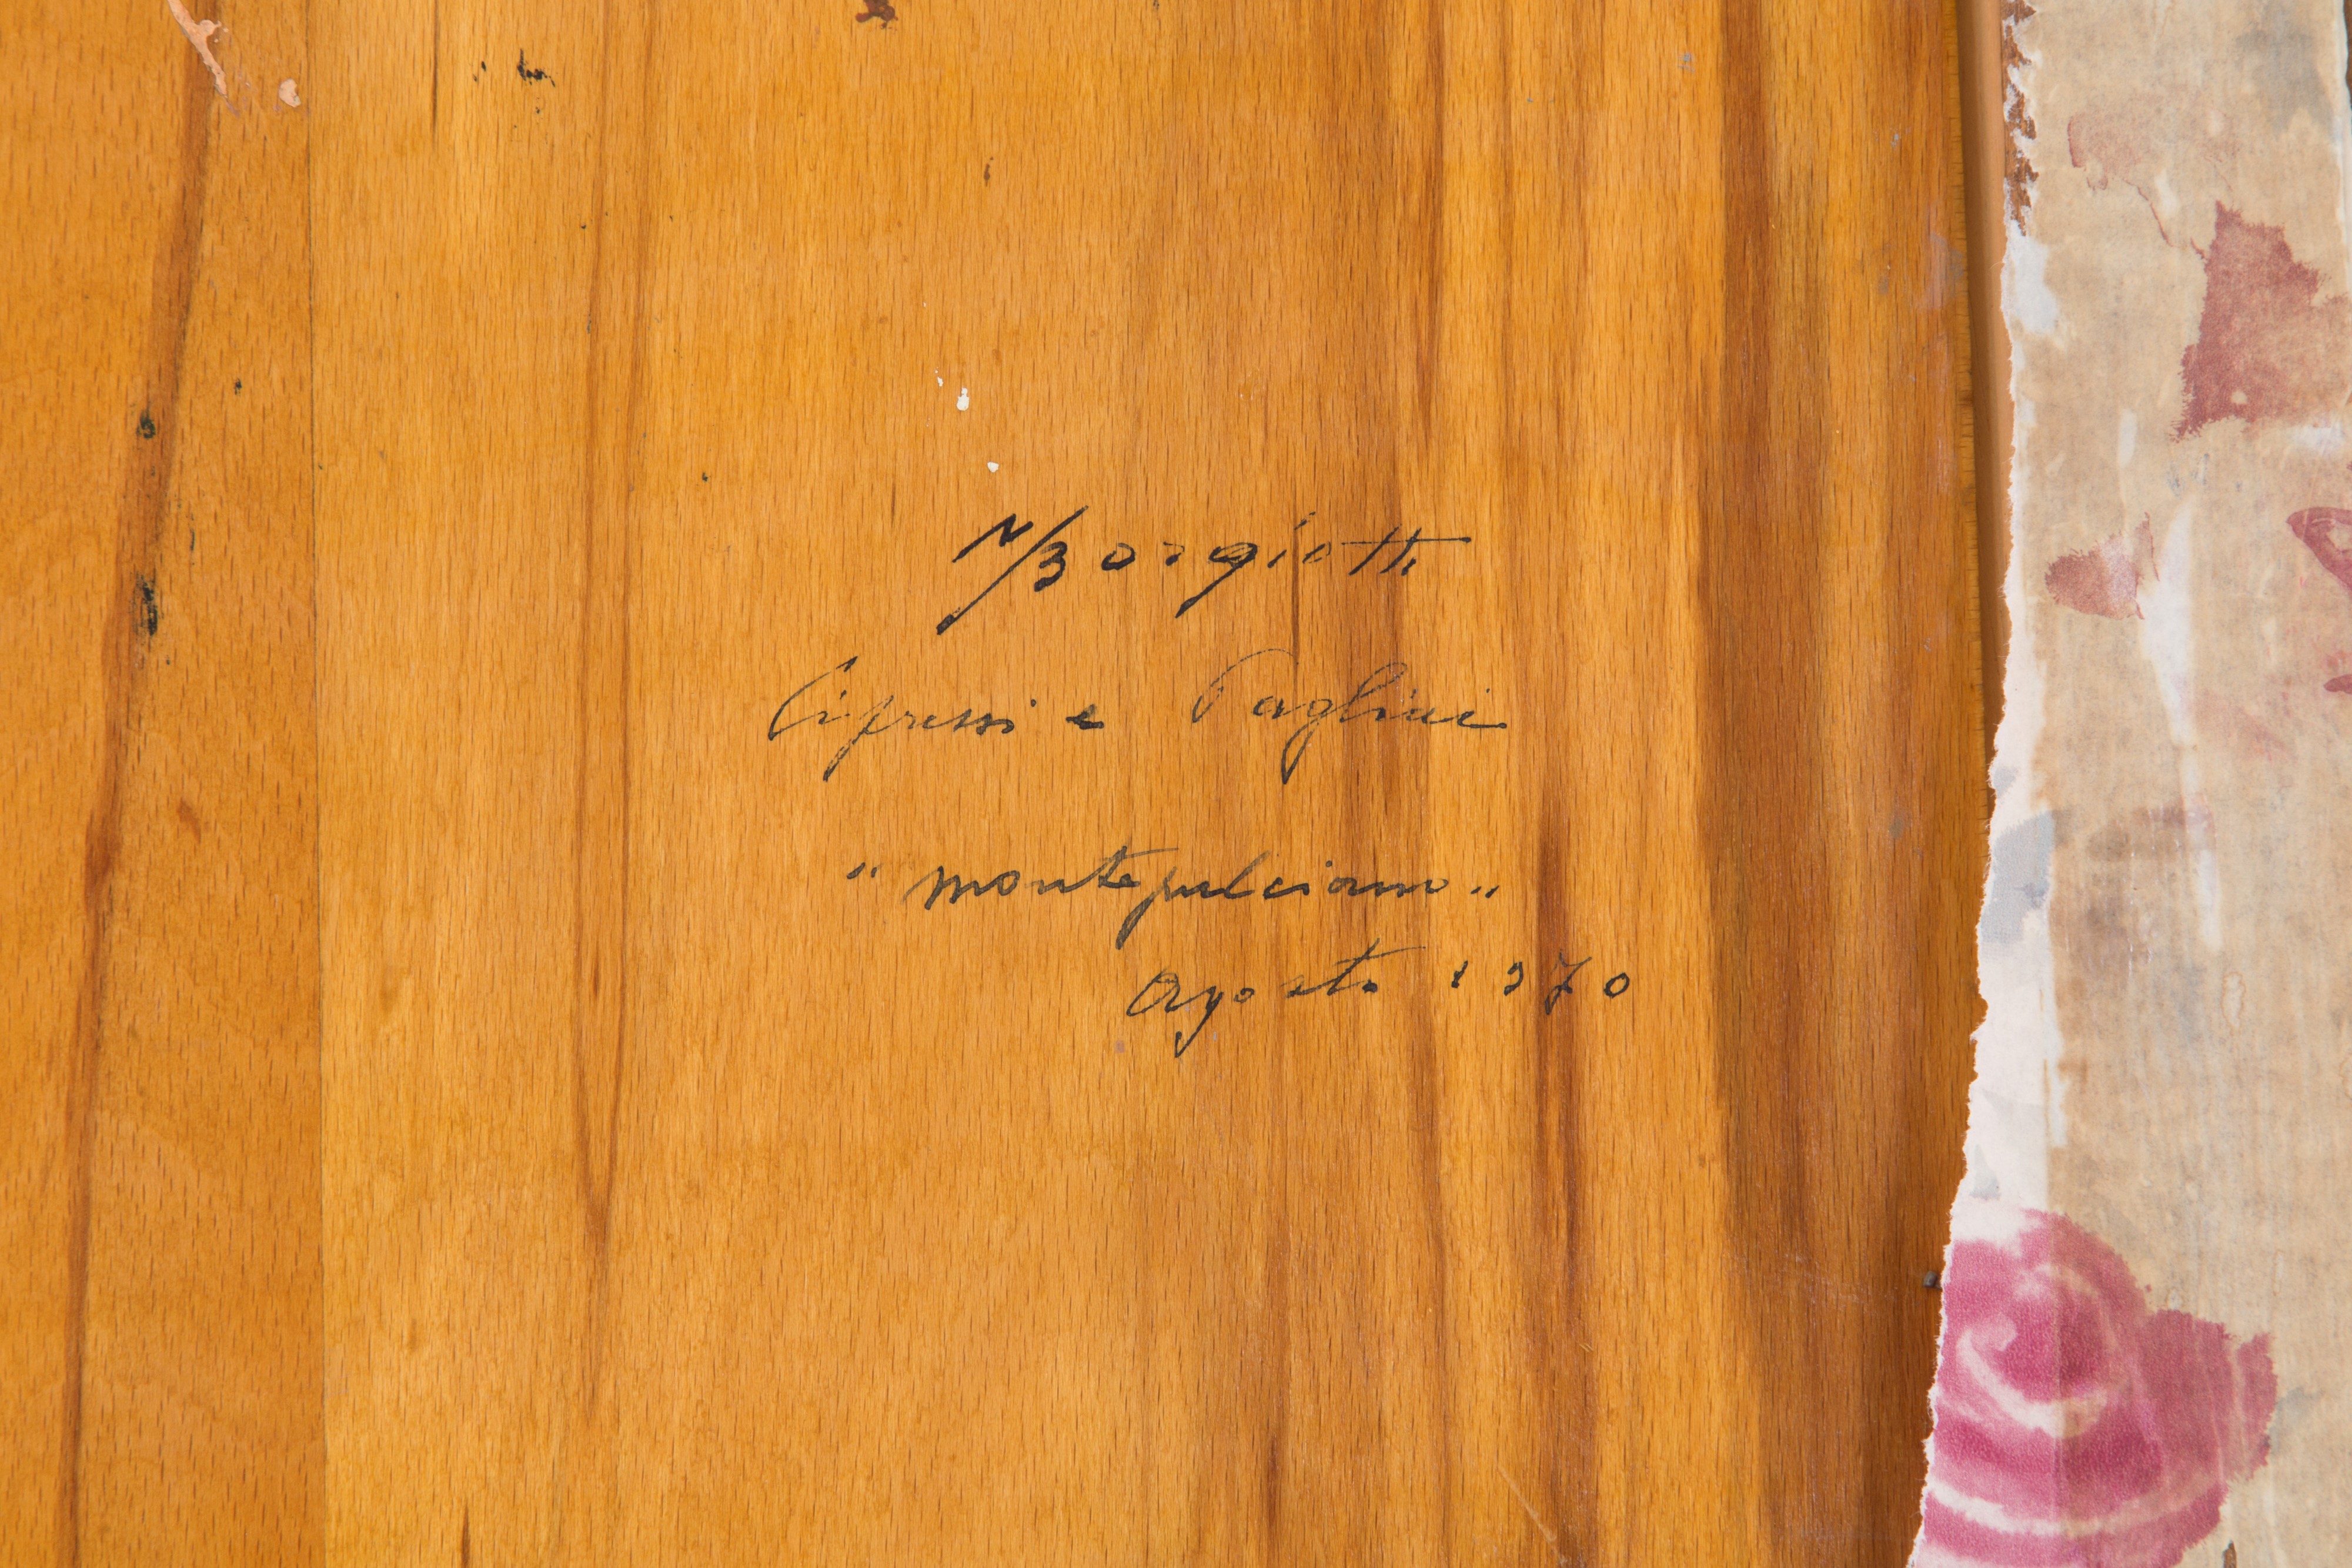 M Borgiotti
Cipressi e Pagliai
"Montepulciano"
Agosto 1970